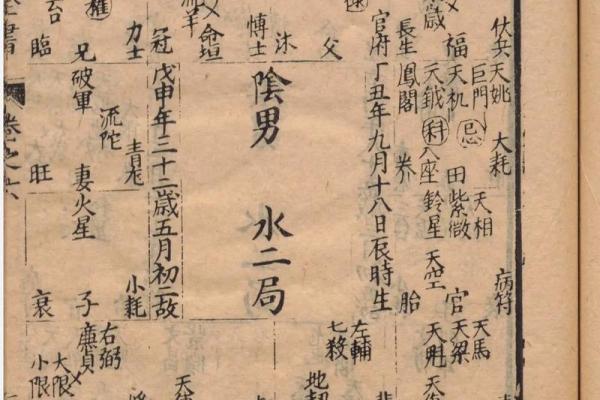 伏兵
天姚
大耗
病符
巨門
天機
忌
福
田
紫微
天相
官
天梁
天馬
歲
天鉞
科
八座
鈴星
天空
天魁
長生
鳳閣
養
胎
官府
丁丑年九月十八日辰時生
父
左輔
七殺
沐
博士
陰男
水二局
命
冠
戊申年三十二歲五月初二故
力士
青龍
小耗
權
兄
破軍
流陀
妻
火星
子
廉貞
右弼
臨
旺
衰
大限
小限
卷之六